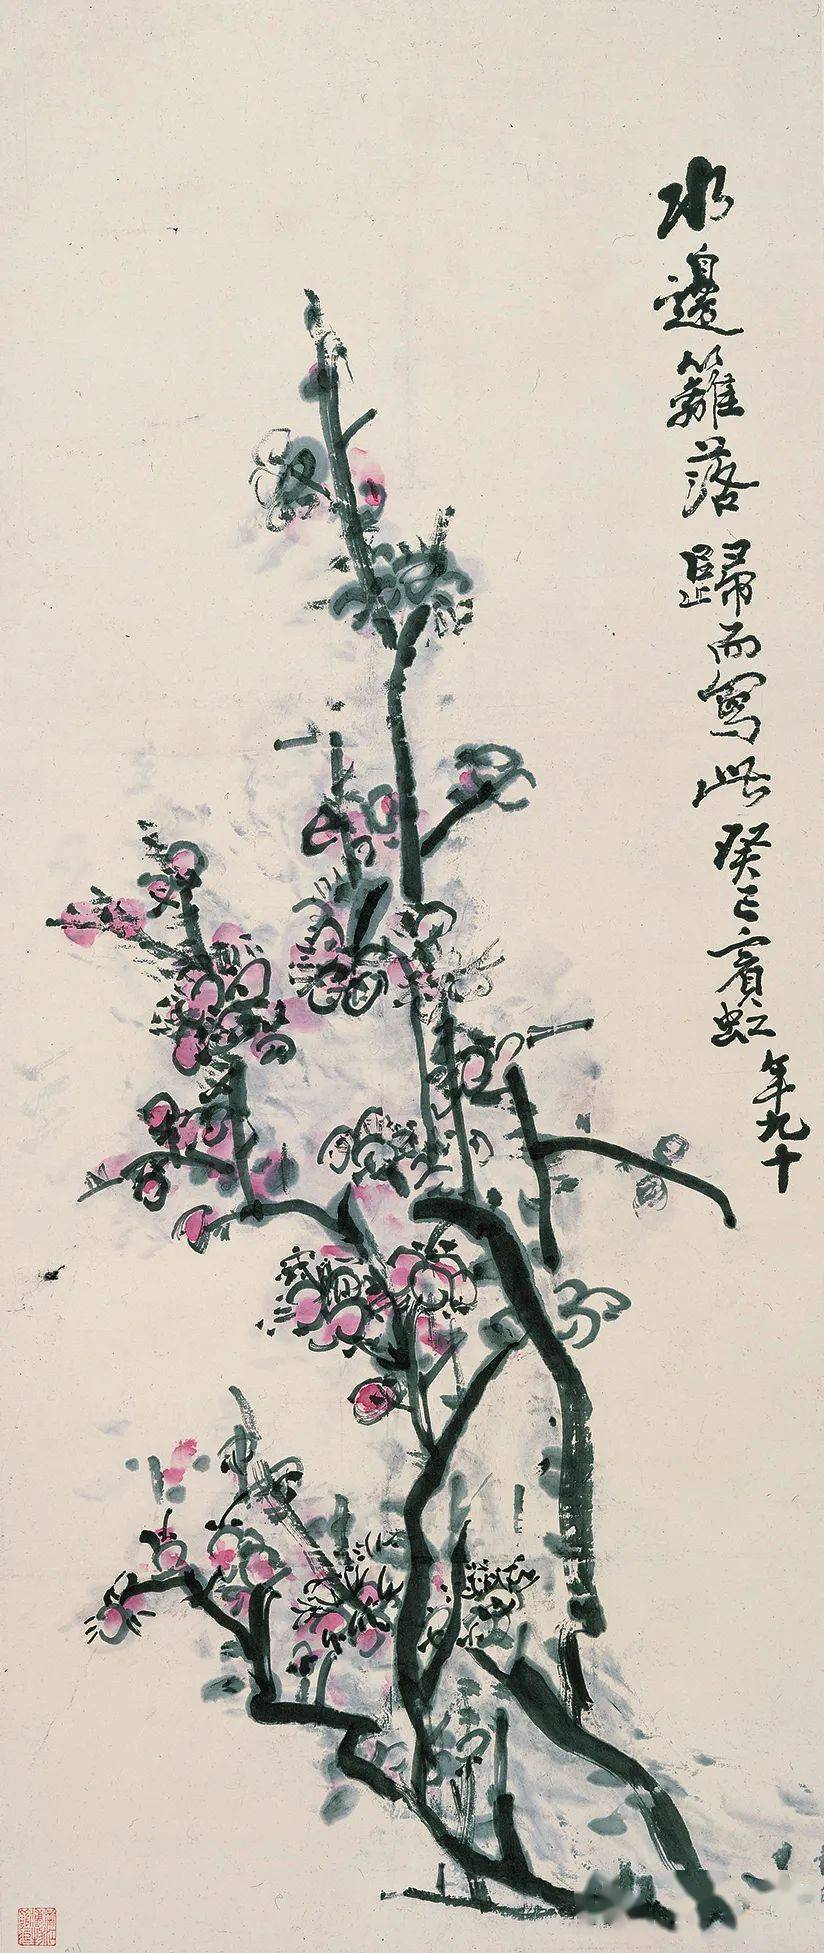 水邊籬落歸而寫此癸巳賓虹
年九十